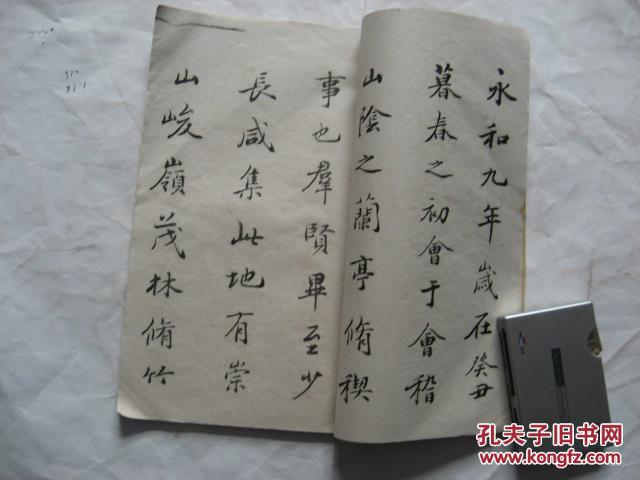 永和九年歲在癸丑
暮春之初會于會稽
山陰之蘭亭脩稧
事也羣賢畢至少
長咸集此地有崇
山峻嶺茂林脩竹
孔夫子旧书网
www.kongfz.com